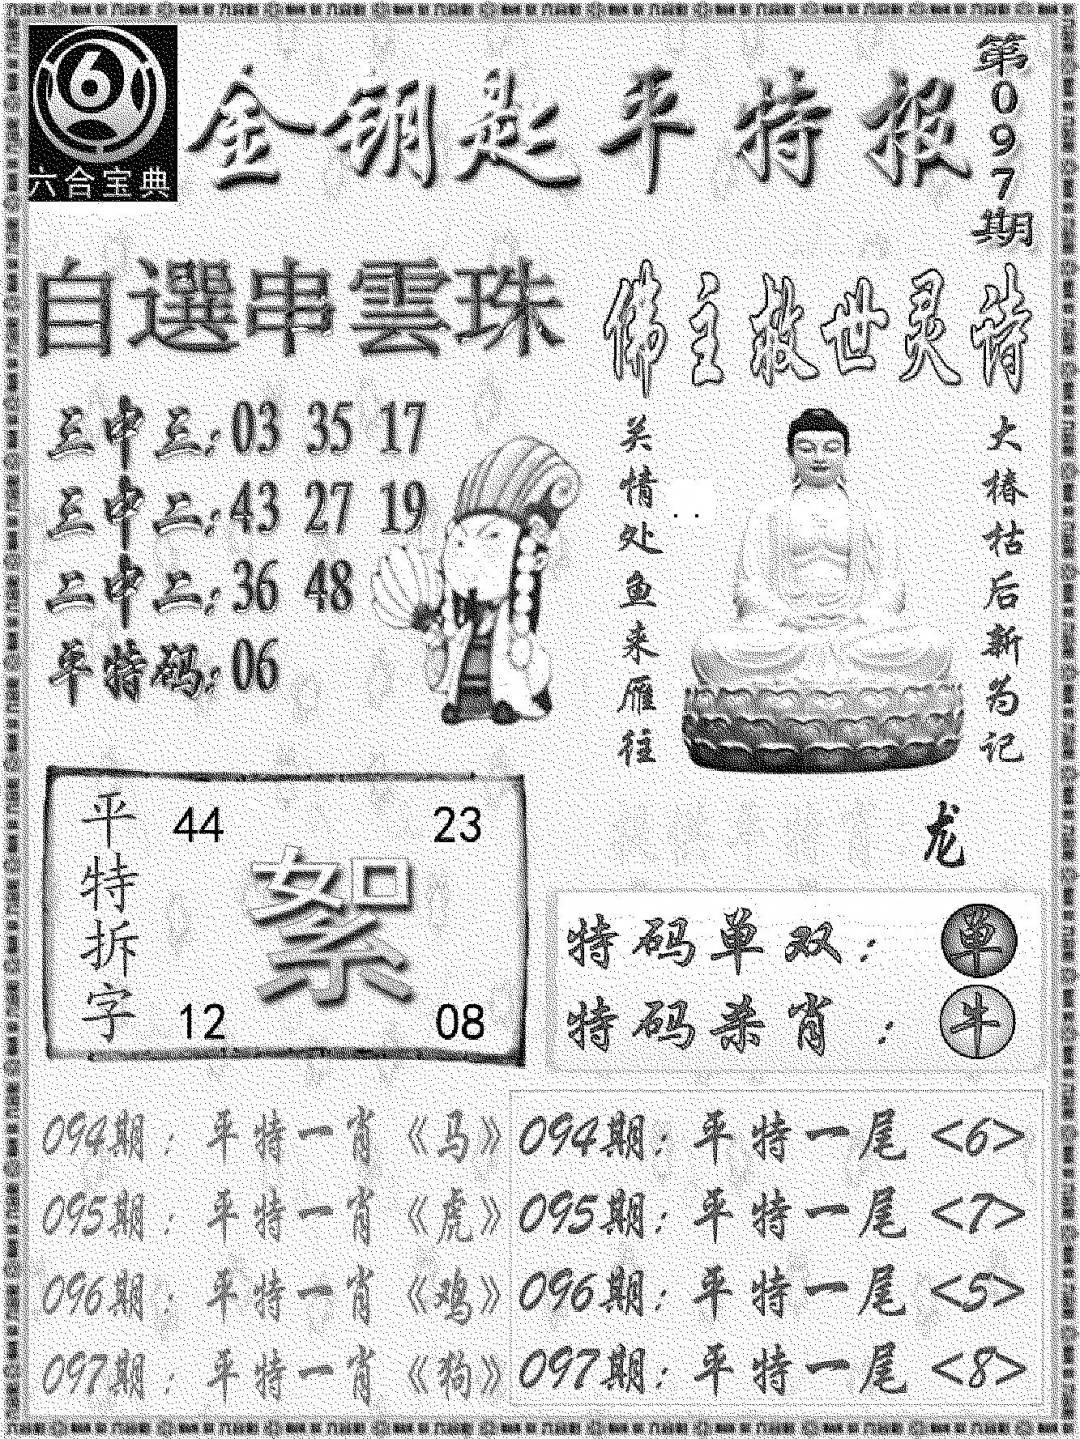 6
六合宝典
金钥匙平特报
第097期
自選串雲珠
三中三:03 35 17
三中二:43 27 19
二中二:36 48
单特码:06
佛主救世灵诗
大椿枯后新为记
关情处鱼来雁往
龙
平特拆字
44 23
絮
12 08
特码单双: 单
特码杀肖: 牛
094期:平特一肖《马》
095期:平特一肖《虎》
096期:平特一肖《鸡》
097期:平特一肖《狗》
094期:平特一尾<6>
095期:平特一尾<7>
096期:平特一尾<5>
097期:平特一尾<8>